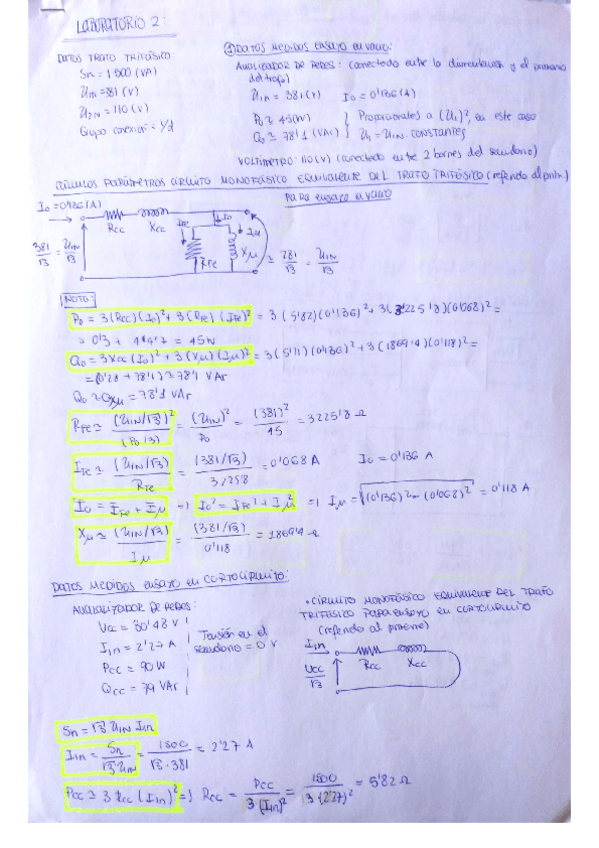 LABORATORIO 2:
DATOS TRAFO TRIFÁSICO
Sn = 1500 (VA)
U1N = 381 (V)
U2N = 110 (V)
Grupo conexión = Yd
① DATOS MEDIDOS ENSAYO EN VACIO:
ANALIZADOR DE REDES: (conectado entre la alimentación y el primario
del trafo)
U1N = 381 (V) I0 = 0'136 (A)
P0 ≈ 45 (W)
Q0 ≈ 78'1 (VAr)
Proporcionales a (U1)², en este caso
U1 = U1N constantes
VOLTIMETRO: 110 (V) (conectado entre 2 bornes del secundario)
CIRCUITO MONOFÁSICO EQUIVALENTE DEL TRAFO TRIFÁSICO (referido al prim.)
PARA ENSAYO EN VACIO
I0 = 0'136 (A)
Rcc Xcc IFe I0 Iμ
381/√3 = U1N/√3
RFe Xμ ≈ 381/√3 = U1N/√3
NOTA:
P0 = 3 (Rcc) (I0)² + 3 (RFe) (IFe)² = 3 (5'82) (0'136)² + 3 (3225'8) (0'068)² =
= 0'3 + 44'7 = 45W
Q0 = 3 Xcc (I0)² + 3 (Xμ) (Iμ)² = 3 (5'11) (0'136)² + 3 (1869'4) (0'118)² =
= (0'28 + 78'1) ≈ 78'1 VAr
Q0 ≈ Qxμ = 78'1 VAr
RFe ≈ (U1N/√3)² / (P0/3) = (U1N)² / P0 = (381)² / 45 = 3225'8 Ω
IFe ≈ (U1N/√3) / RFe = (381/√3) / 3225'8 = 0'068 A I0 = 0'136 A
I0 = IFe + Iμ → I0² = IFe² + Iμ² ⇒ Iμ = √(0'136)² - (0'068)² = 0'118 A
Xμ ≈ (U1N/√3) / Iμ = (381/√3) / 0'118 = 1869'4 Ω
DATOS MEDIDOS ENSAYO EN CORTOCIRCUITO:
ANALIZADOR DE REDES:
Ucc = 30'48 V
I1n = 2'27 A
Pcc = 90 W
Qcc = 79 VAr
Tensión en el
secundario = 0 V
• CIRCUITO MONOFÁSICO EQUIVALENTE DEL TRAFO
TRIFÁSICO PARA ENSAYO EN CORTOCIRCUITO
(referido al primario)
I1n
Rcc Xcc
Ucc/√3
Sn = √3 U1N I1n
I1n = Sn / √3 U1N = 1500 / √3 · 381 = 2'27 A
Pcc ≈ 3 Rcc (I1n)² ⇒ Rcc = Pcc / 3 (I1n)² = 1500 / 3 (2'27)² = 5'82 Ω